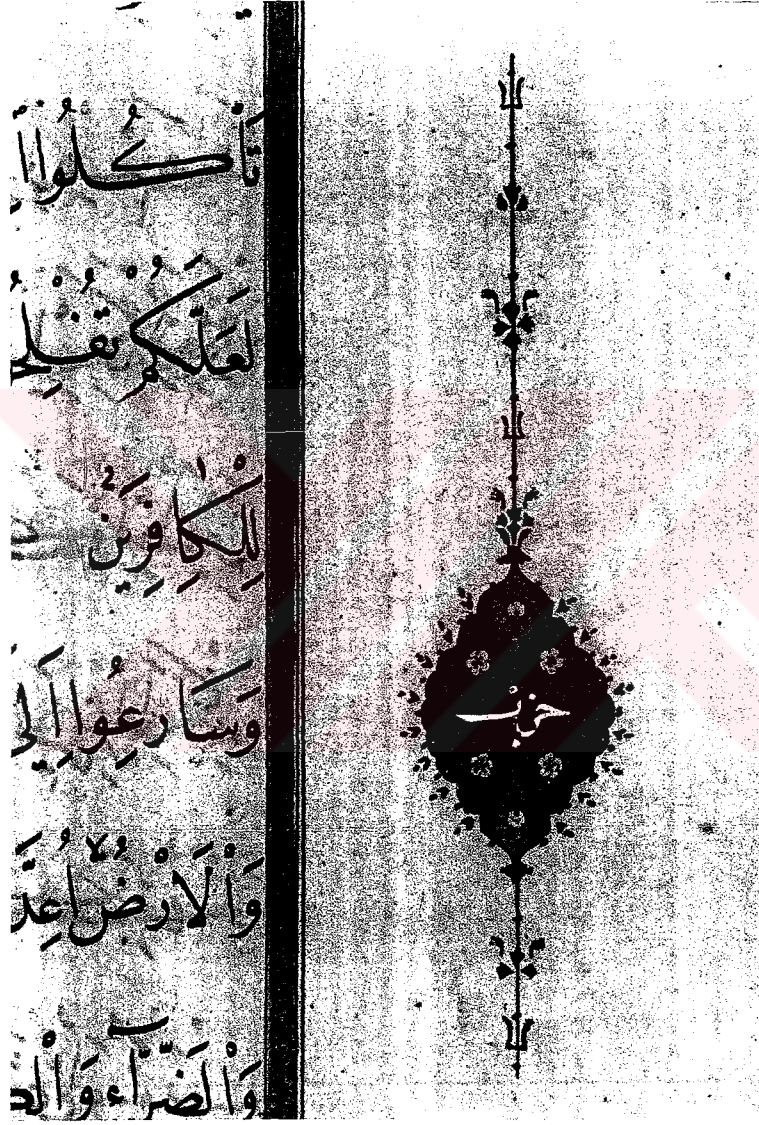 تَأْكُلُوا
لَعَلَّكُمْ تُفْلِحُ
لِلْكَافِرِينَ
وَسَارِعُوا إِلَى
وَالْاَرْضُ اُعِدَّ
وَالضَّرَّآءِ
حزب